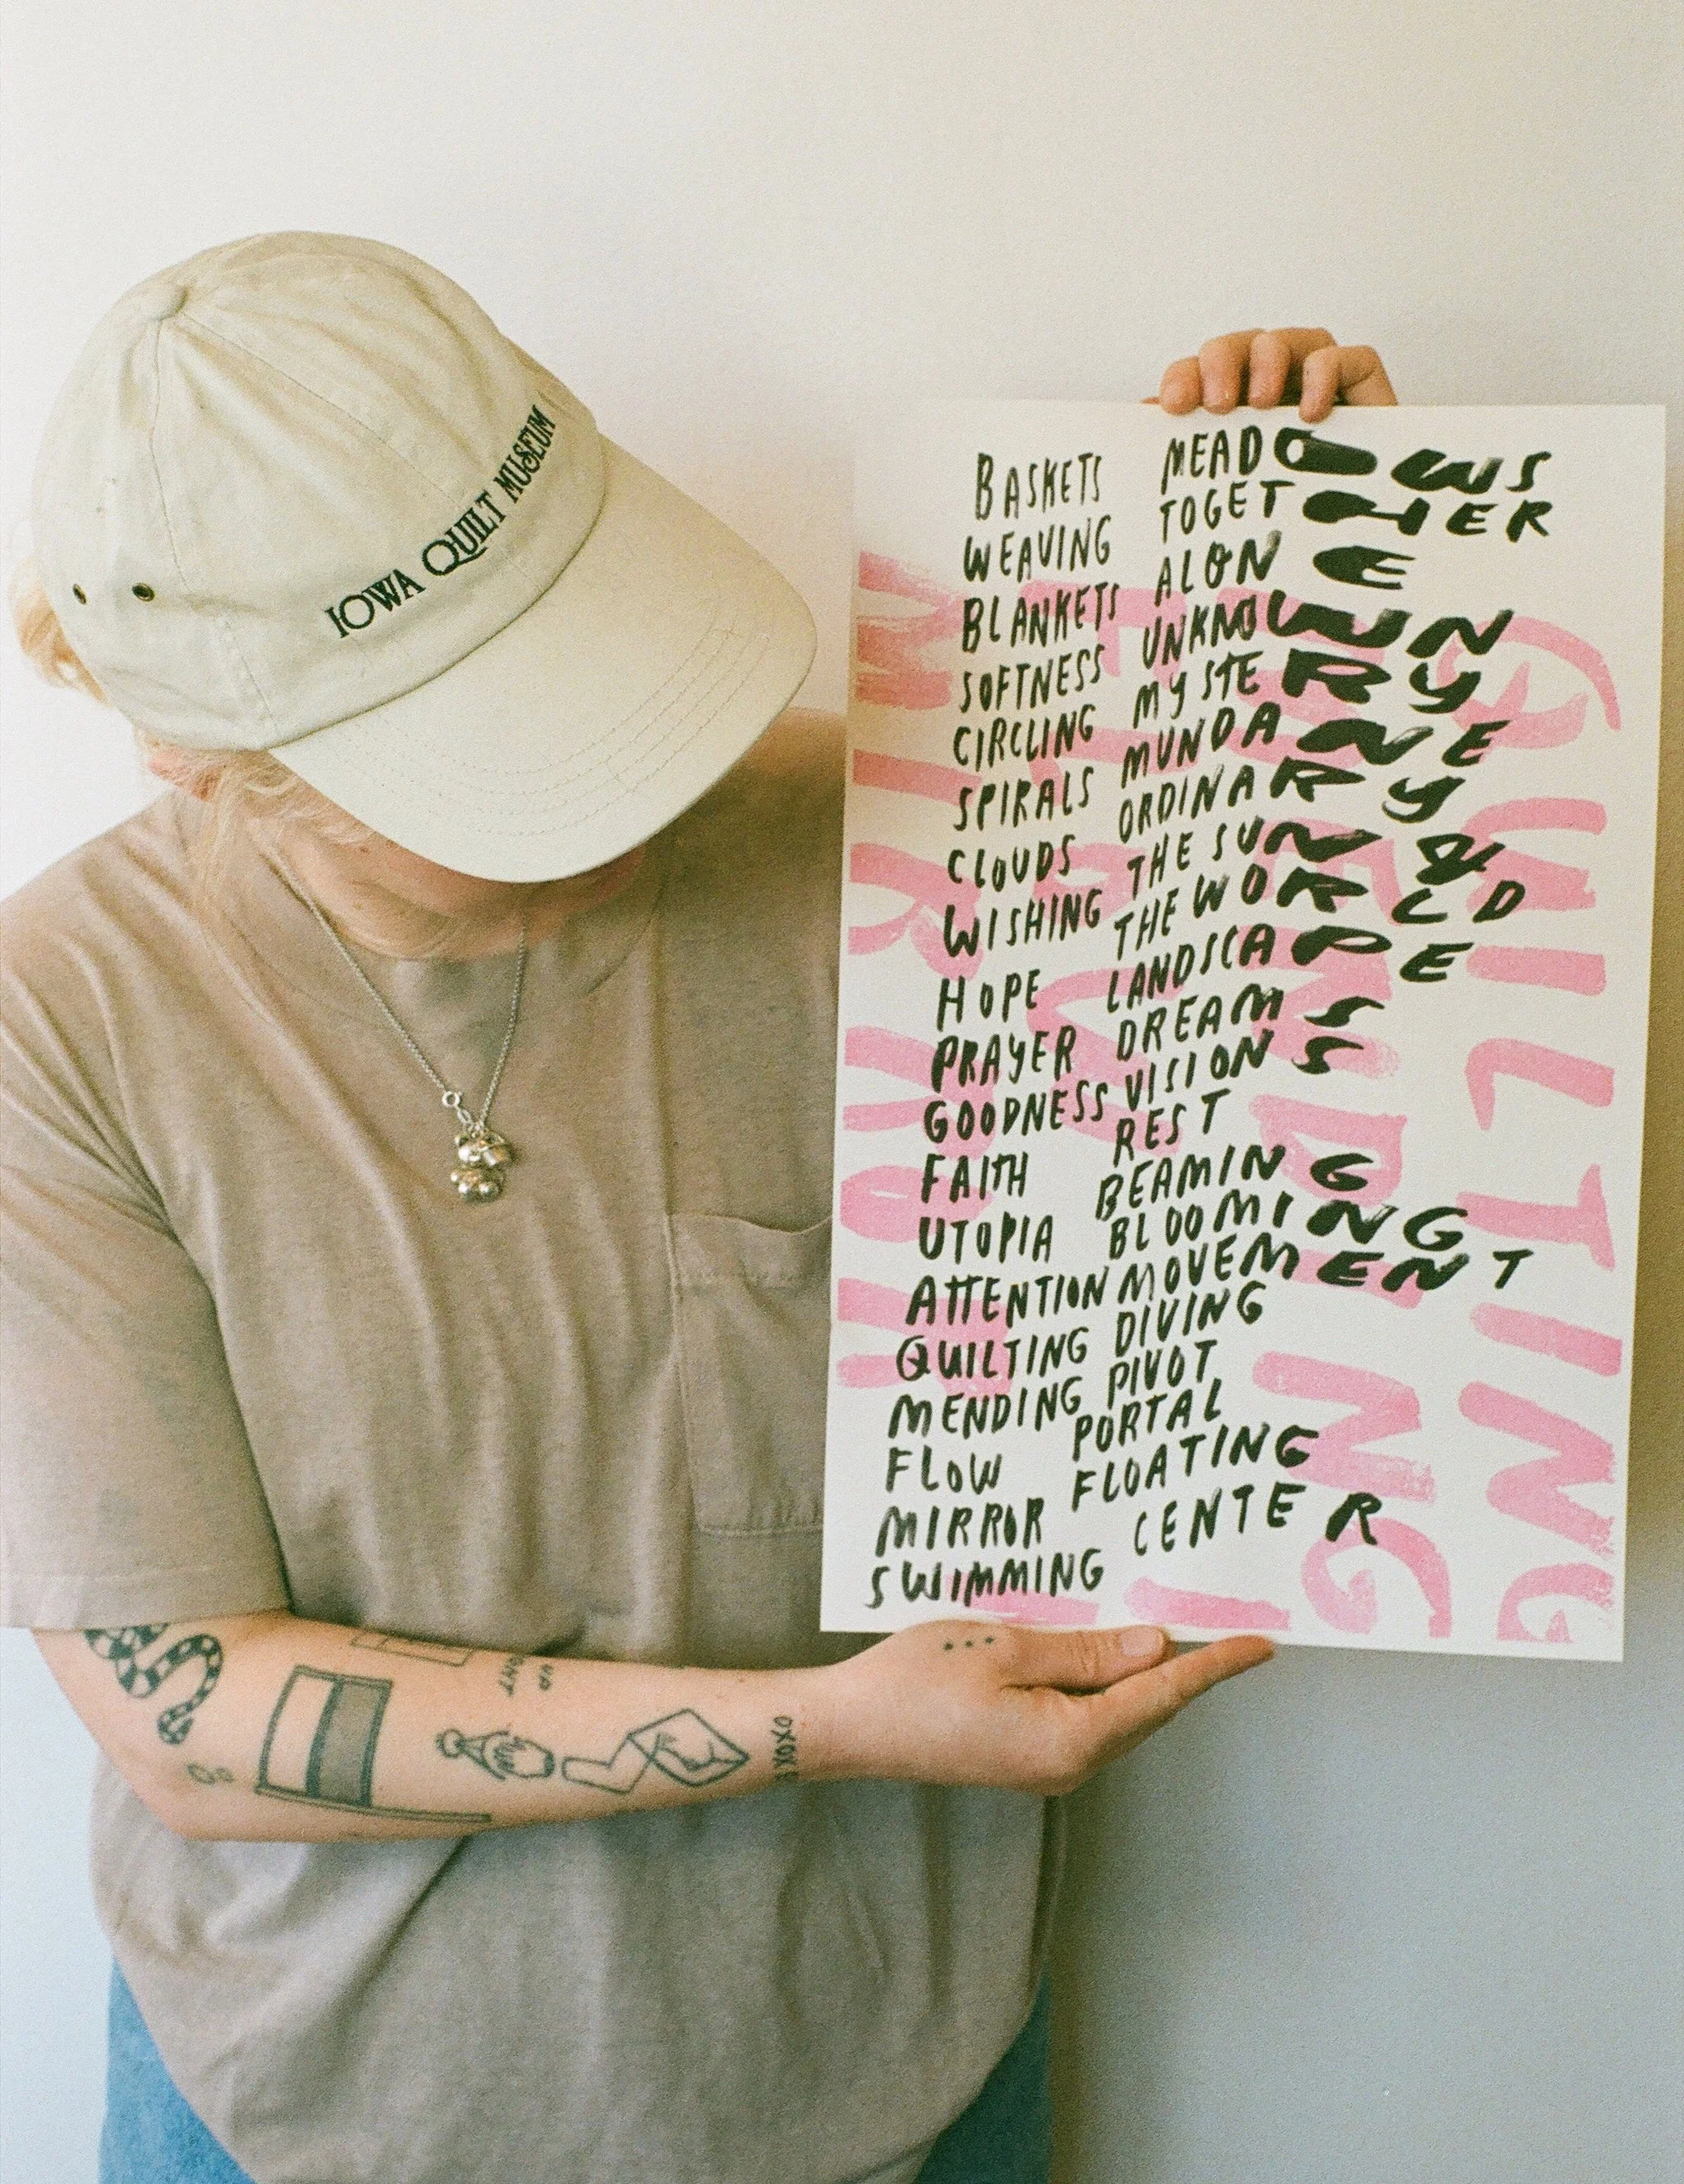 IOWA QUILT MUSEUM
BASKETS MEADOWS
WEAVING TOGETHER
BLANKETS ALONE
SOFTNESS UNKNOWN
CIRCLING MYSTERY
SPIRALS MUNDANE
CLOUDS ORDINARY
WISHING THE SUN &
HOPE THE WORLD
PRAYER LANDSCAPE
GOODNESS DREAMS
FAITH VISIONS
UTOPIA REST
ATTENTION BEAMING
QUILTING BLOOMING
MENDING MOVEMENT
FLOW DIVING
MIRROR PIVOT
SWIMMING PORTAL
FLOATING
CENTER
QUILTING
MENDING
MIRROR
XOXOX